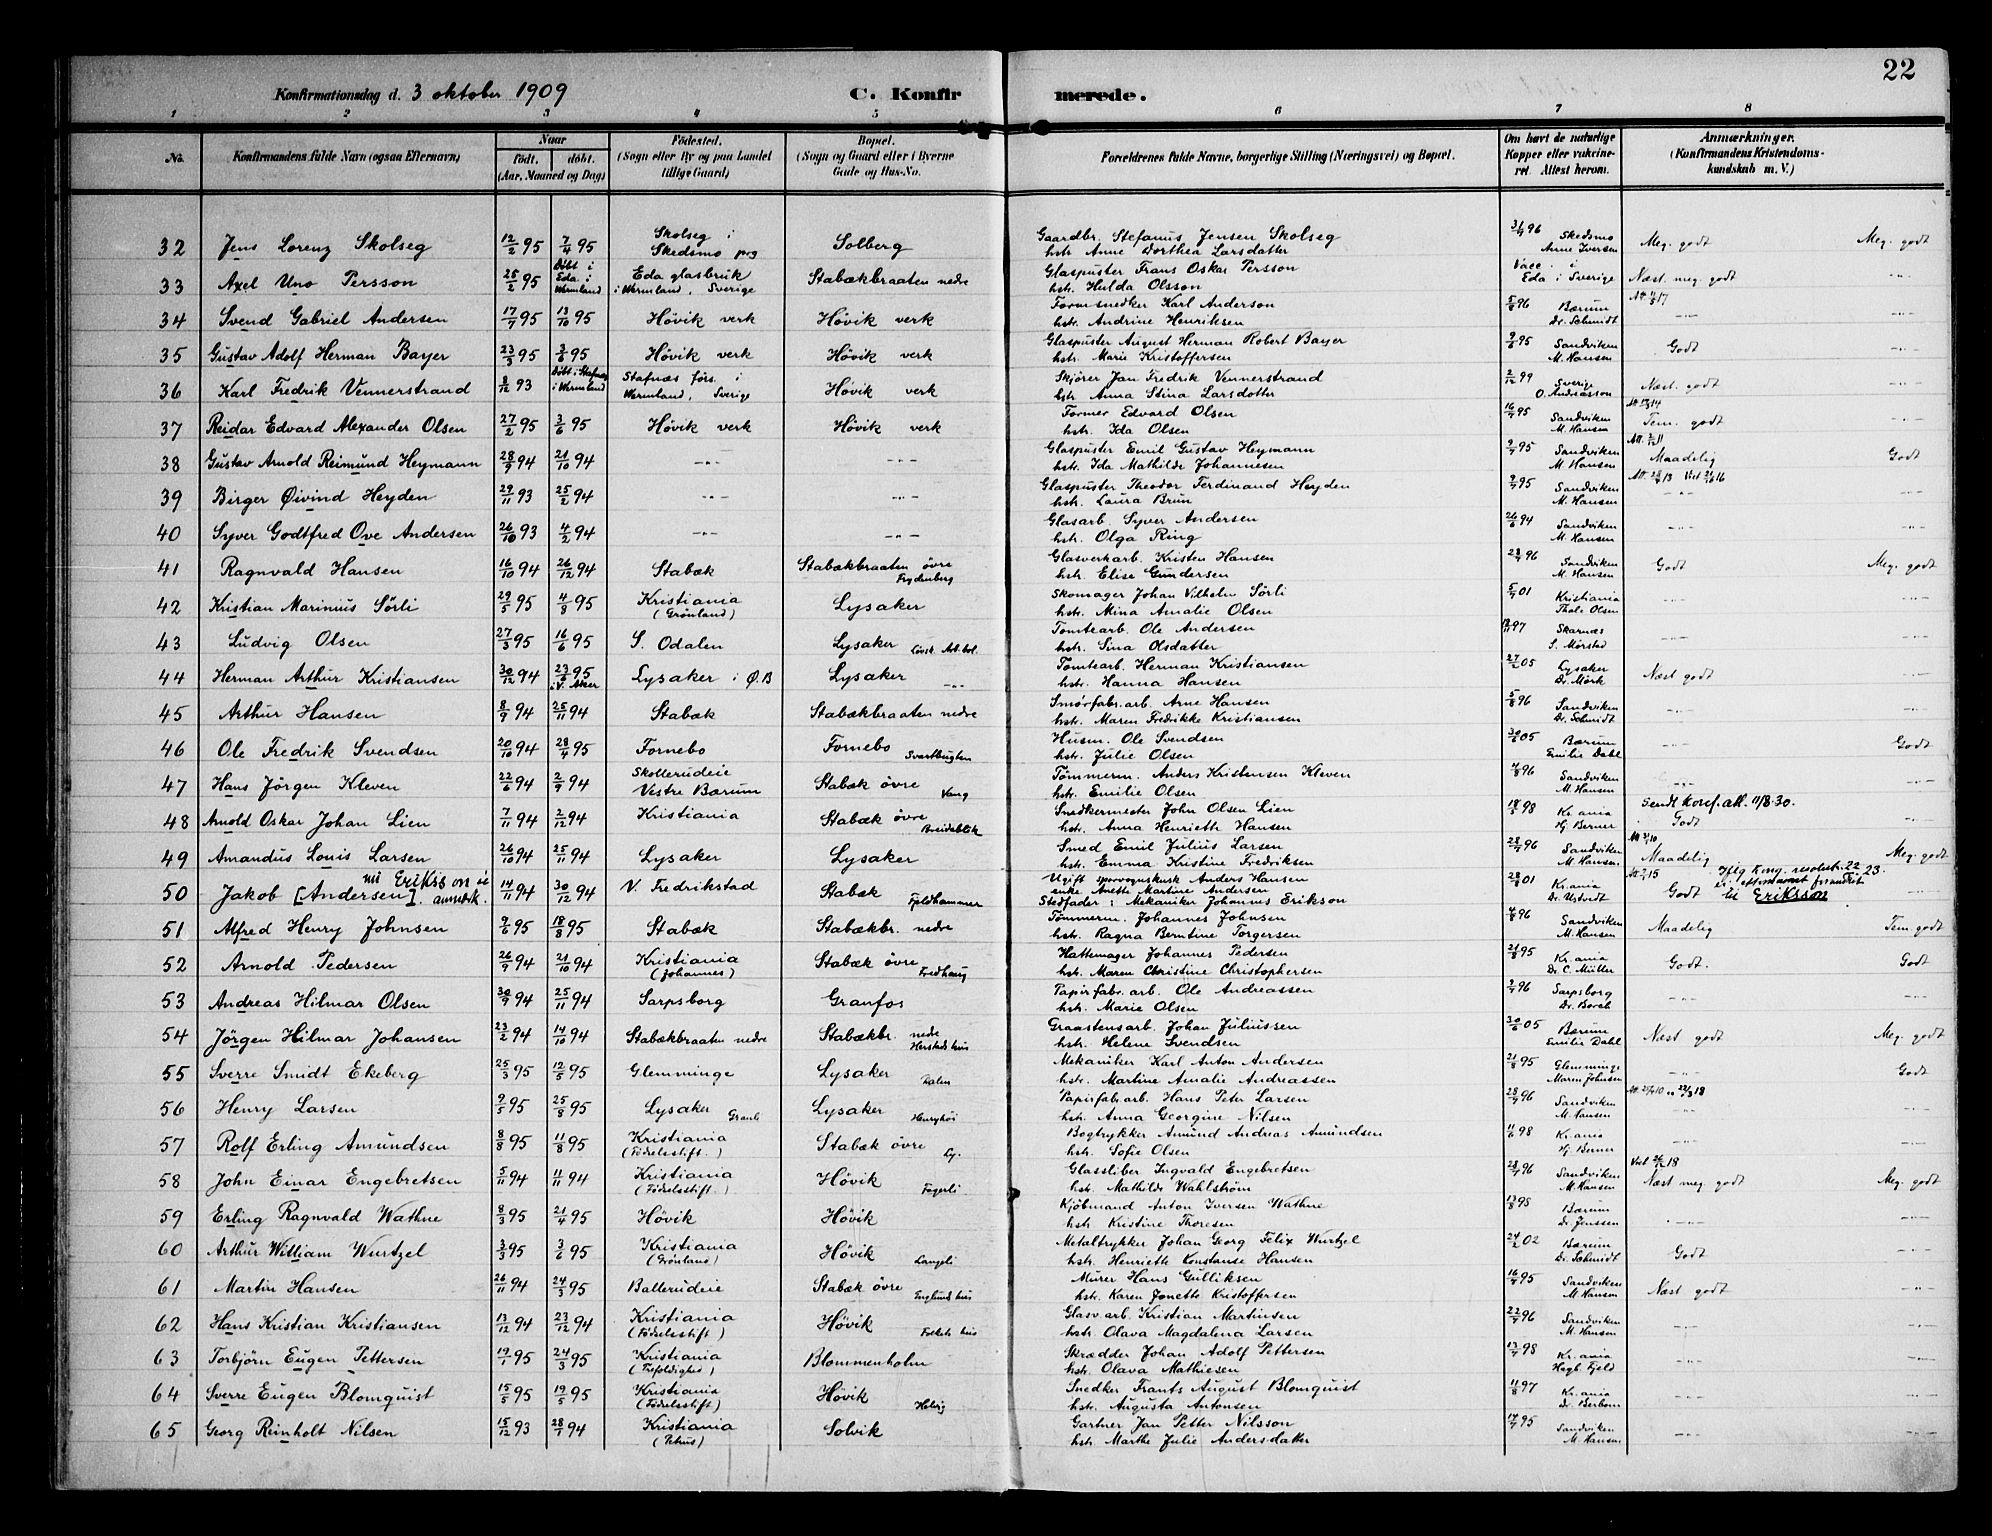 22
Konfirmationsdag d. 3 oktober 1909 C. Konfirmerede.
1 2 3 4 5 6 7 8
No. Konfirmandens fulde Navn (ogsaa Efternavn) Naar født. døbt. (Aar, Maaned og Dag) Födested. (Sogn eller By og paa Landet tillige Gaard) Bopæl. (Sogn og Gaard eller i Byerne Gade og Hus-No. Forældrenes fulde Navne, borgerlige Stilling (Næringsvei) og Bopæl. Om havt de naturlige Kopper eller vakcineret. Attest herom. Anmærkninger. (Konfirmandens Kristendomskundskab m. V.)
32 Jens Lorenz Skolseg 12/2 95 7/4 95 Skolseg i Skedsmo prg Solberg Gaardbr. Stefanus Jensen Skolseg hstr. Anne Dorthea Larsdatter 96 Skedsmo Anne Iversen Meg. godt Meg. godt
33 Axel Uno Persson 25/2 95 Döbt i Eda i Wermland Eda glasbruk i Wermland, Sverige Stabækbraaten nedre Glaspuster Frans Oskar Persson hstr. Hulda Olsson Vacc. i Eda i Sverige Næst. meg. godt -"-
34 Svend Gabriel Andersen 17/7 95 13/10 95 Hövik verk Hövik verk Formsnedker Karl Anderson hstr. Andrine Henriksen 96 Bærum Dr. Schmidt -"- -"-
35 Gustav Adolf Herman Bayer 23/3 95 3/6 95 Hövik verk Hövik verk Glaspuster August Herman Robert Bayer hstr. Marie Kristoffersen 95 Sandviken M. Hansen Godt -"-
36 Karl Fredrik Vennerstrand 8/12 93 Döbt i Stafnæs i Wermland Stafnæs förs. i Wermland, Sverige Hövik verk Skjörer Jan Fredrik Vennerstrand hstr. Anna Stina Larsdotter 2/12 99 Sverige O. Andreasson Næst. godt -"-
37 Reidar Edvard Alexander Olsen 27/2 95 3/6 95 Hövik verk Hövik verk Former Edvard Olsen hstr. Ida Olsen 95 Sandviken M. Hansen Tem. godt -"-
38 Gustav Arnold Reimund Heymann 28/9 94 21/10 94 -"- -"- Glaspuster Emil Gustav Heymann hstr. Ida Mathilde Johannesen 95 Sandviken M. Hansen Maadelig Godt
39 Birger Øivind Heyden 29/11 93 25/2 94 -"- -"- Glaspuster Theodor Ferdinand Heyden hstr. Laura Brun 95 Sandviken M. Hansen -"- -"-
40 Syver Godtfred Ove Andersen 26/10 93 4/2 94 -"- -"- Glasarb. Syver Andersen hstr. Olga Ring 26/6 94 Sandviken M. Hansen -"- -"-
41 Ragnvald Hansen 16/10 94 26/12 94 Stabæk Stabækbraaten övre Frydenberg Glasverkarb. Kristen Hansen hstr. Elise Gundersen 96 Sandviken M. Hansen Godt Meg. godt
42 Kristian Marinius Sörli 29/5 95 4/8 95 Kristiania (Grönland) Lysaker Skomager Johan Vilhelm Sörli hstr. Mina Amalie Olsen 01 Kristiania Thale Olsen -"- -"-
43 Ludvig Olsen 27/3 95 16/6 95 S. Odalen Lysaker Tomtearb. Ole Andersen hstr. Sina Olsdatter 97 Skarnæs S. Mörstad -"- -"-
44 Herman Arthur Kristiansen 30/12 94 23/6 95 i V. Aker Lysaker i Ø.B Lysaker -"- Tomtearb. Herman Kristiansen hstr. Hanna Hansen 27/2 05 Lysaker Dr. Mörk Næst godt -"-
45 Arthur Hansen 8/9 94 25/11 94 Stabæk Stabækbraaten nedre Smörfabr.arb. Arne Hansen hstr. Maren Fredrikke Kristiansen 96 Sandviken Dr. Schmidt -"- -"-
46 Ole Fredrik Svendsen 20/10 94 28/4 95 Fornebo Fornebo Svartbugten Husm. Ole Svendsen hstr. Julie Olsen 30/6 05 Bærum Emilie Dahl -"- Godt
47 Hans Jörgen Kleven 22/6 94 2/9 94 Skollerudeie Vestre Bærum Stabæk övre Vang Tömmerm. Anders Kristensen Kleven hstr. Emilie Olsen 96 Sandviken M. Hansen -"- -"-
48 Arnold Oskar Johan Lien 7/11 94 2/12 94 Kristiania Stabæk övre Breidablik Snedkermester John Olsen Lien hstr. Anna Henriette Hansen 98 Kr.ania Hj Berner Sendt konf.att. 11/8.30. Godt -"-
49 Amandus Louis Larsen 26/10 94 25/11 94 Lysaker Lysaker Smed Emil Julius Larsen hstr. Emma Kristine Fredriksen 96 Sandviken M. Hansen Maadelig Meg. godt
50 Jakob [Andersen] nu Erikson se anmerk. 14/11 94 30/12 94 V. Fredrikstad Stabæk Fjeldhammer Ugift sporvognskusk Anders Hansen enke Anette Martine Andersen Stedfader: Mekaniker Johannes Erikson 28/8 01 Kr.ania Dr. Ustvedt Godt til Eriksson
51 Alfred Henry Johnsen 9/6 95 18/8 95 Stabæk Stabækbr. nedre Tömmerm. Johannes Johnsen hstr. Ragna Berntine Torgersen 96 Sandviken M. Hansen Maadelig Tem. godt
52 Arnold Pedersen 26/9 94 21/10 94 Kristiania (Johannes) Stabæk övre Fredhaug Hattemager Johannes Pedersen hstr. Maren Christine Christophersen 95 Kr.ania Dr. C. Müller Godt. Godt
53 Andreas Hilmar Olsen 30/9 94 25/11 94 Sarpsborg Granfos Papirfabr.arb. Ole Andreassen hstr. Marie Olsen 96 Sarpsborg Dr. Borch -"- -"-
54 Jörgen Hilmar Johansen 23/2 94 14/10 94 Stabækbraaten nedre Stabækbr. nedre Herstads hus Graastensarb. Johan Juliussen hstr. Helene Svendsen 30/6 05 Bærum Emilie Dahl Næst godt Meg. godt
55 Sverre Smidt Ekeberg 25/3 95 12/5 95 Glemminge Lysaker Mekaniker Karl Anton Andersen hstr. Martine Amalie Andreassen 95 Glemminge Maren Johnsen Godt
56 Henry Larsen 9/5 95 25/8 95 Lysaker Lysaker Papirfabarb. Hans Peter Larsen hstr. Anna Georgine Nilsen 96 Sandviken M. Hansen -"- -"-
57 Rolf Erling Amundsen 8/8 95 11/8 95 Kristiania (Födselsstift.) Stabæk övre Bogtrykker Amund Andreas Amundsen hstr. Sofie Olsen 11/6 98 Kr.ania Hj. Berner -"- -"-
58 John Einar Engebretsen 5/11 94 11/11 94 Kristiania (Födselsstift.) Hövik Fagerli Glassliber Ingvald Engebretsen hstr. Mathilde Wahlström 96 Sandviken M. Hansen Næst meg. godt Meg. godt
59 Erling Ragnvald Wathne 8/3 95 21/4 95 Hövik Hövik Kjöbmand Anton Iversen Wathne hstr. Kristine Thoresen 98 Bærum Dr. Jenssen -"- -"-
60 Arthur William Wurtzel 3/3 95 3/6 95 Kristiania (Grönland) Hövik Langeli Metaltrykker Johan Georg Felix Wurtzel hstr. Henriette Konstanse Hansen 24/2 02 Bærum Dr. Schmidt Godt -"-
61 Martin Hansen 26/11 94 24/3 95 Ballerudeie Stabæk övre Englunds hus Murer Hans Gulliksen hstr. Karen Jonette Kristoffersen 95 Sandviken M. Hansen Næst godt -"-
62 Hans Kristian Kristiansen 13/12 94 23/12 94 Kristiania (Födselsstift) Hövik Folkets hus Glasv.arb. Kristian Martinsen hstr. Olava Magdalena Larsen 96 Sandviken M. Hansen -"- -"-
63 Torbjörn Eugen Pettersen 19/1 95 24/3 95 Kristiania (Trefoldighet) Blommenholm Skrædder Johan Adolf Pettersen hstr. Olava Mathiesen 98 Kr.ania Hagb. Fjeld -"- -"-
64 Sverre Eugen Blomquist 15/5 95 19/5 95 Kristiania (Födselsstift) Hövik Snedker Frants August Blomquist hstr. Augusta Antonsen 11/8 97 Kr.ania -"- -"-
65 Georg Reinholt Nilsen 15/12 93 28/1 94 Kristiania (Petrus) Solvik Gartner Jan Petter Nilsson hstr. Marthe Julie Andersdatter 95 Sandviken M. Hansen -"- -"-